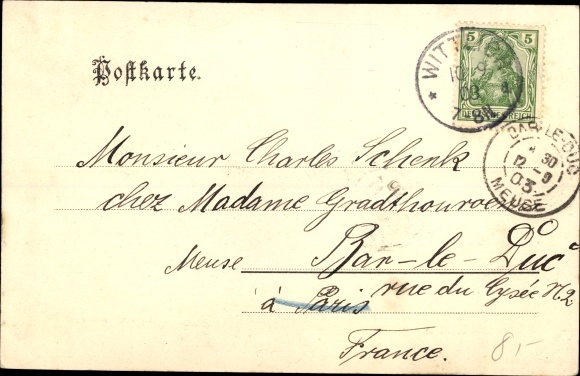 Postkarte.
5 5
DEUTSCHES REICH
10 9
03
7-8N
BAR-LE-DUC
* 30
12 - 9
03
MEUSE
Monsieur Charles Schenk
chez Madame
Meuse Bar-le-Duc
rue du Lycée N 2
à Paris
France.
8,-